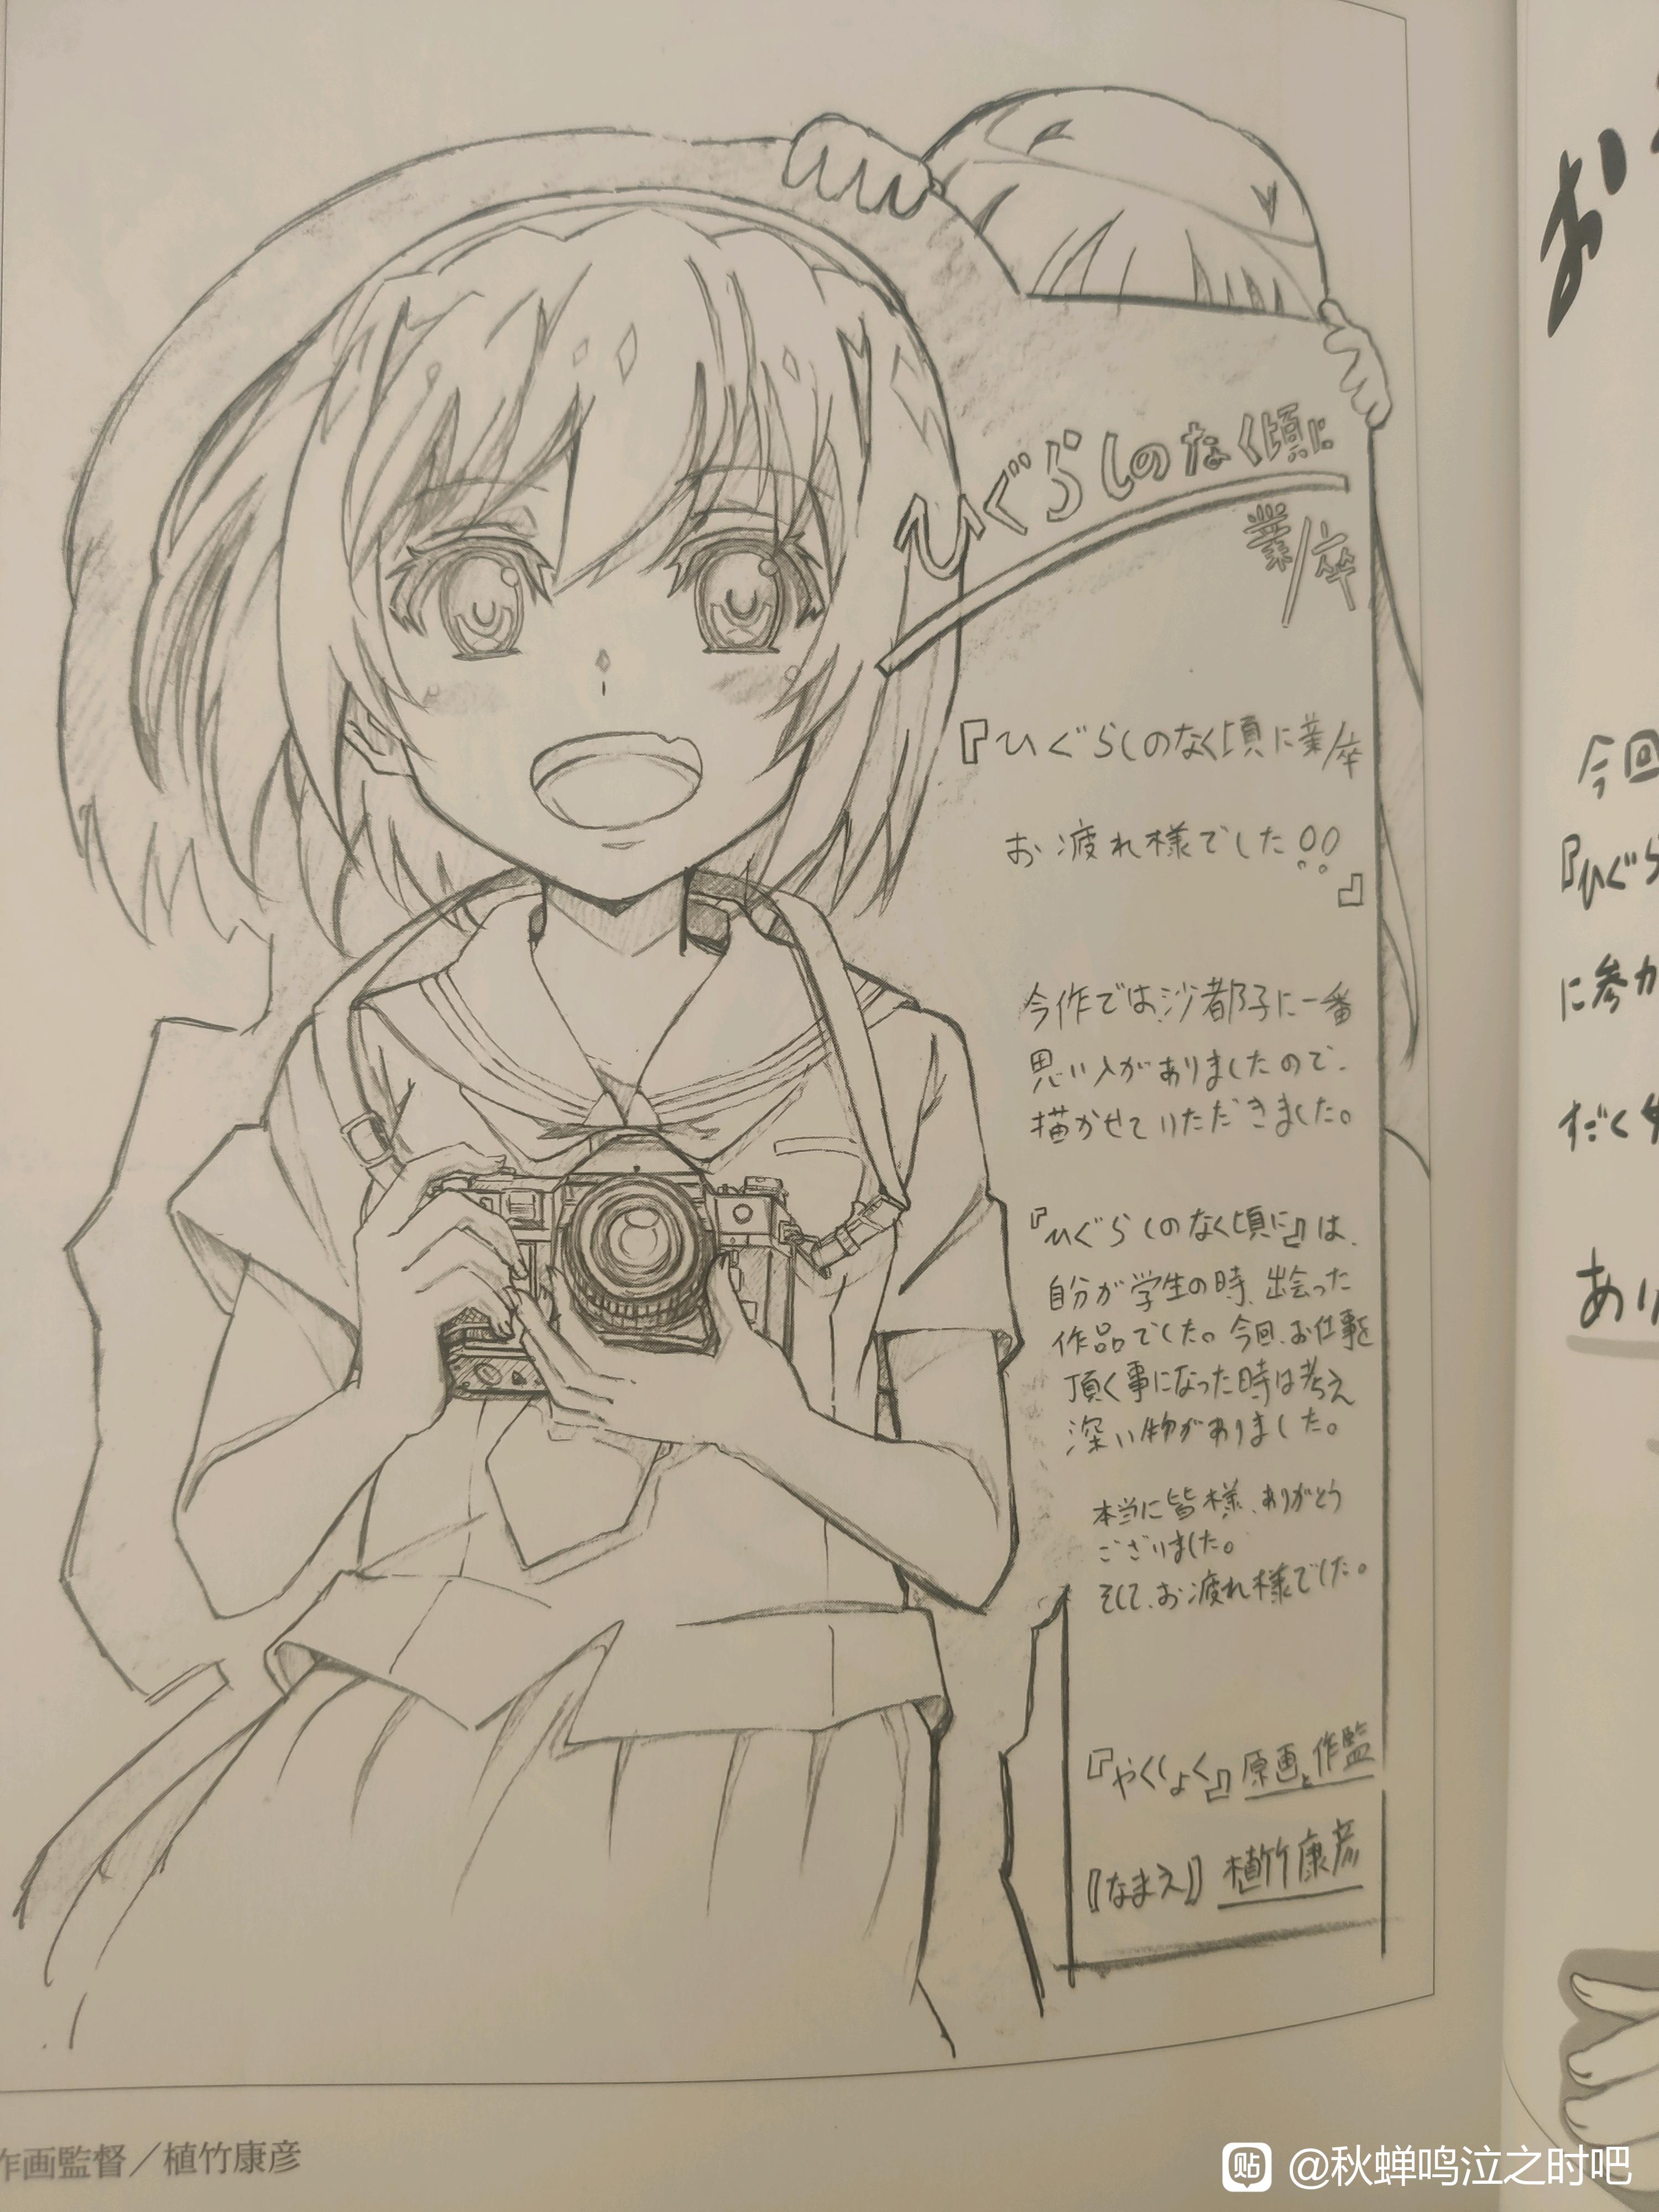 ひぐらしのなく頃に
業/卒
『ひぐらしのなく頃に業/卒
お疲れ様でした!!
』
今作では沙都子に一番
思い入がありましたので、
描かせていただきました。
『ひぐらしのなく頃に』は、
自分が学生の時、出会った
作品でした。今回、お仕事を
頂く事になった時は考え
深い物がありました。
本当に皆様、ありがとう
ございました。
そして、お疲れ様でした。
『やくしょく』原画、作監
『なまえ』植竹康彦
作画監督／植竹康彦
お
今回
『ひぐら
に参か
だく
あり
貼 @秋蝉鸣泣之时吧